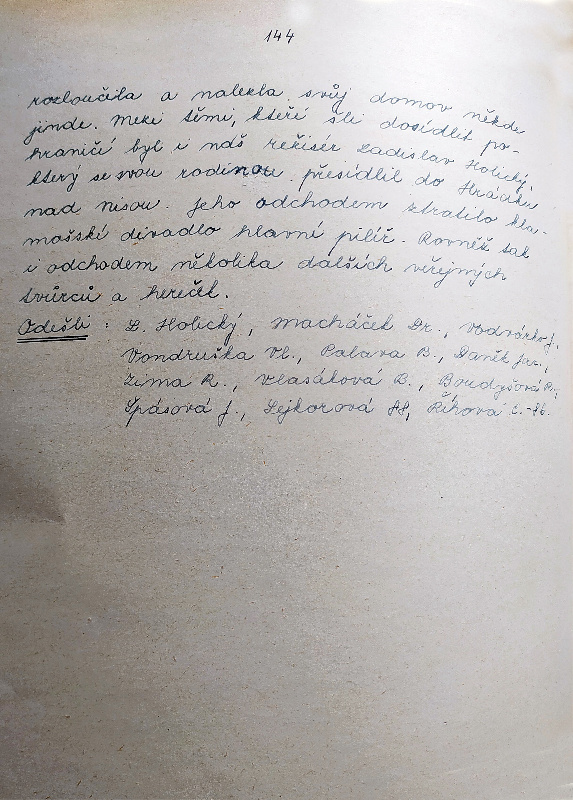 144
rozloučila a nalezla svůj domov někde
jinde. Mezi těmi, kteří šli dosídlit po-
hraničí byl i náš režisér Ladislav Holický,
který se svou rodinou přesídlil do Hrádku
nad Nisou. Jeho odchodem ztratilo kla-
mašské divadlo hlavní pilíř. Rovněž tak
i odchodem několika dalších věřejných
tvůrců a hereček.
Odešli : L. Holický, Macháček Dr., Vodvárko J.
Vondruška Vl., Palava B., Daněk Jar.,
Zima R., Vlasáková B., Boudyšová R.,
Spásová J., Lejkorová M., Říhová